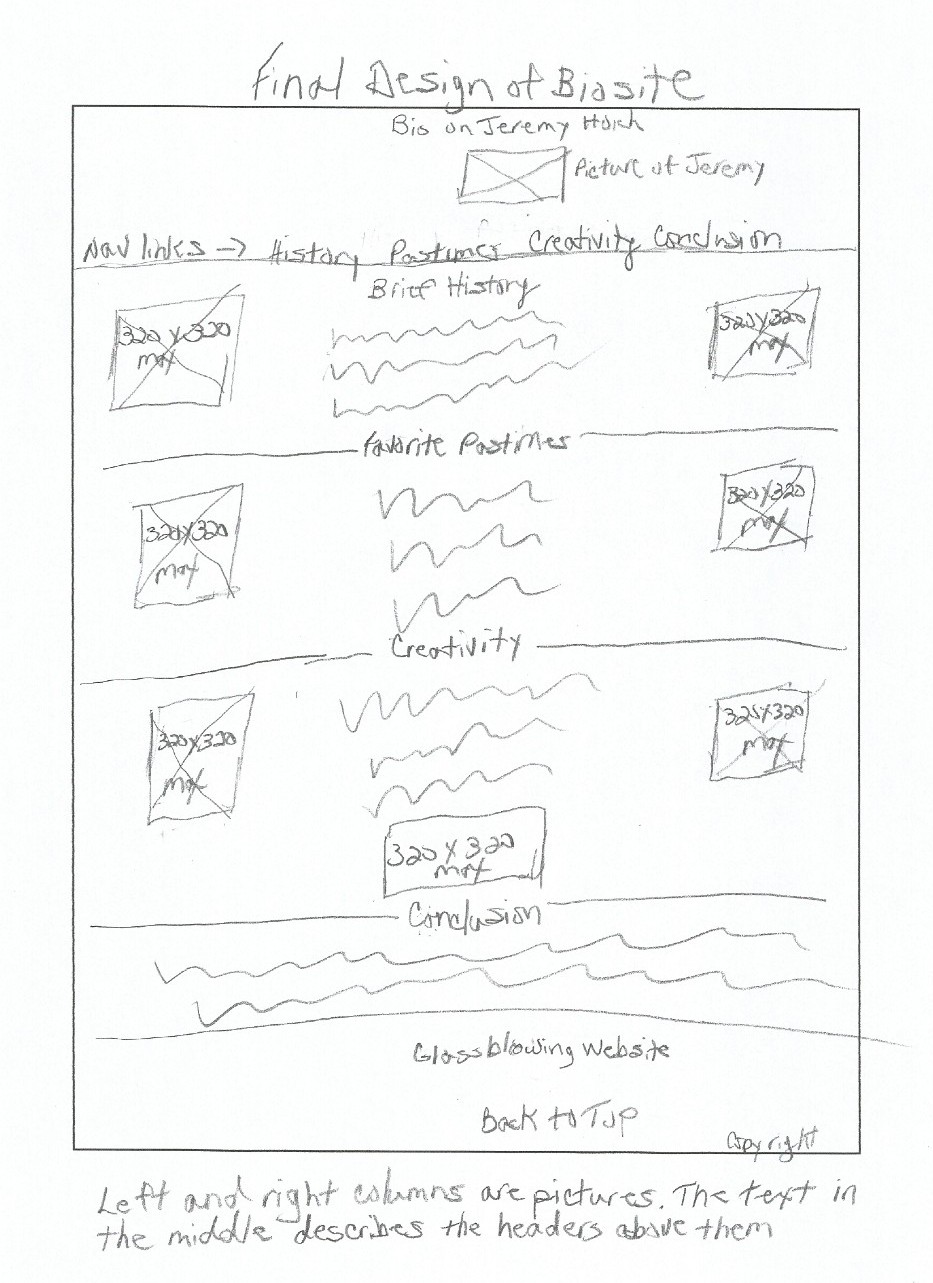 Final Design of Biosite
Bio on Jeremy
Picture of Jeremy
Nav links → History Pastimes Creativity Conclusion
Brief History
320 x 320
max
320 x 320
max
Favorite Pastimes
320 x 320
max
320 x 320
max
Creativity
320 x 320
max
320 x 320
max
320 x 320
max
Conclusion
Glassblowing Website
Back to Top
Copyright
Left and right columns are pictures. The text in
the middle describes the headers above them